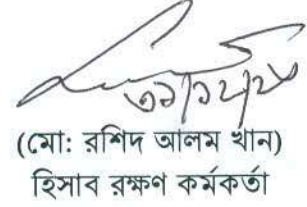 (মো: রশিদ আলম খান)
হিসাব রক্ষণ কর্মকর্তা